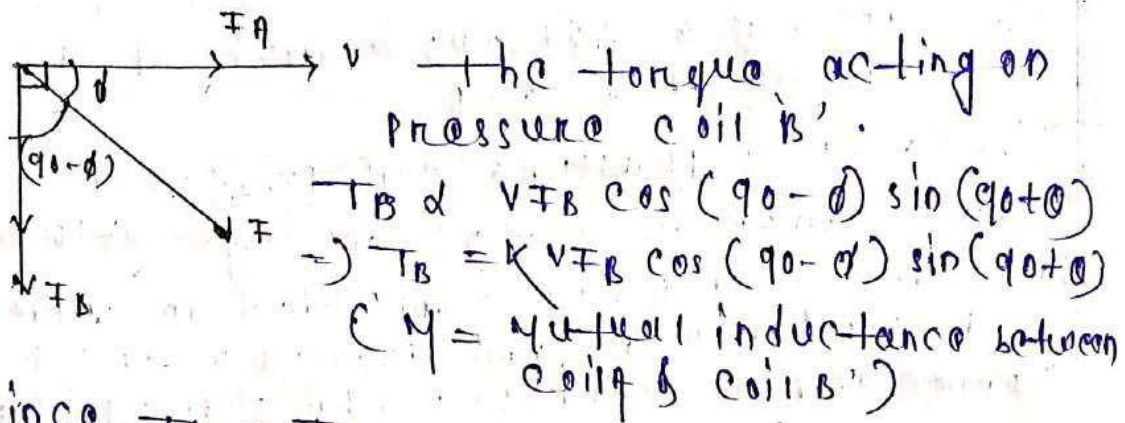 IA
V
φ
(90-φ)
I
IB
The torque acting on
pressure coil B'.
TB α VIB cos (90-φ) sin (90+θ)
=) TB = K VIB cos (90-φ) sin (90+θ)
( M = Mutual inductance between
coil A & coil B')